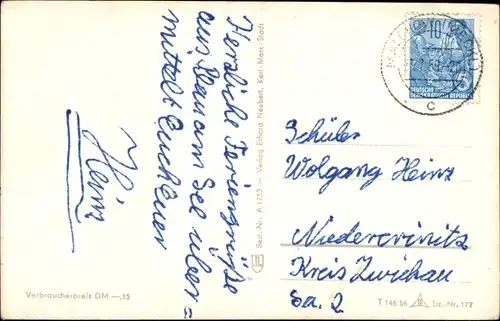 Herzliche Feriengrüße
aus Plau am See über=
mittelt Euch Euer
Heinz
Best.-Nr. A 1753 — Verlag Erhard Neubert, Karl-Marx-Stadt
Verbraucherpreis DM —,15
10
DEUTSCHE
DEMOKRATISCHE REPUBLIK
5
c
Schüler
Wolfgang Heinz
Niedercrinitz
Kreis Zwickau
Sa. 2
T 146 56 Liz.-Nr. 172